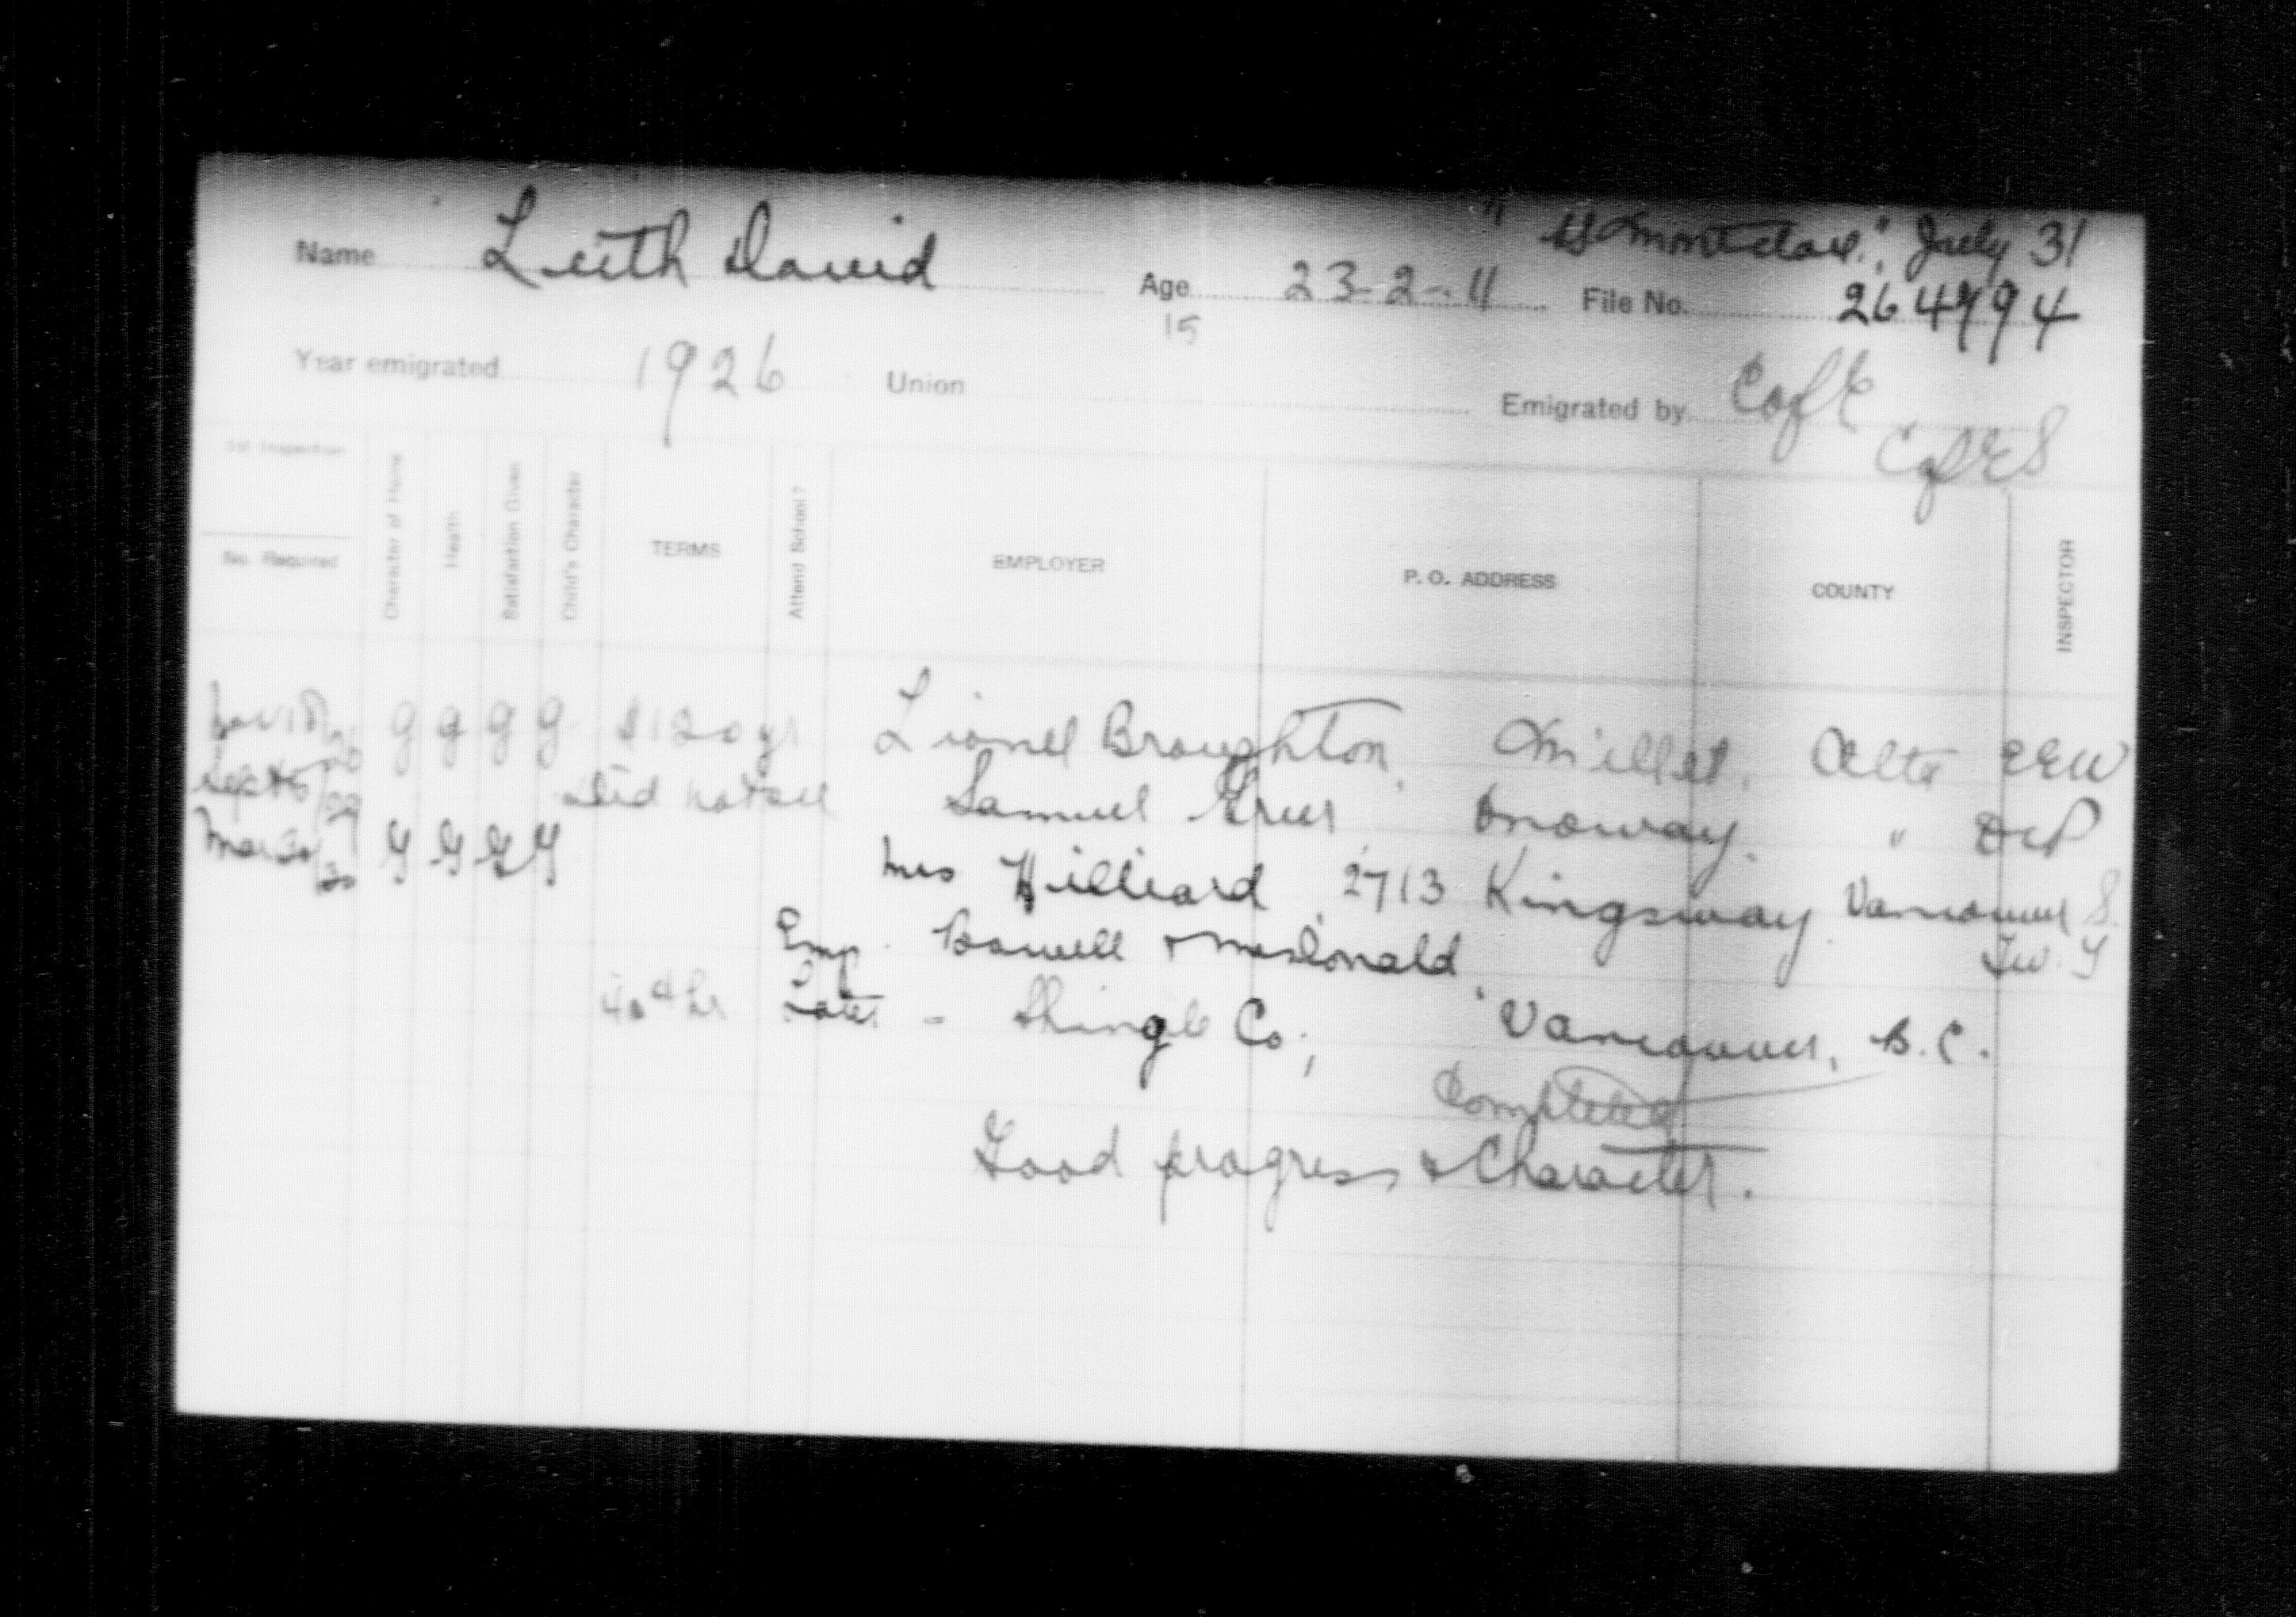 " SS Montclare", July 31
Name Leith David Age 23-2-11 File No. 264794
15
Year emigrated 1926 Union Emigrated by CofE
CofES
1st Inspection
No. Required Character of Home Health Satisfaction Given Child's Character TERMS Attend School? EMPLOYER P. O. ADDRESS COUNTY INSPECTOR
Nov 18/26 g g g g $120 yr Lionel Broughton, Millet, Alta EEW
Sept 5/29 Did not see Samuel Greer Onoway. "
Mar 20/30 G G G G Mrs Hilliard, 2713 Kingsway. Vancouver S.
Emp. Boswell & McDonald
40¢ hr Later - Shingle Co; Vancouver, B.C.
Completed
Good progress & Character.